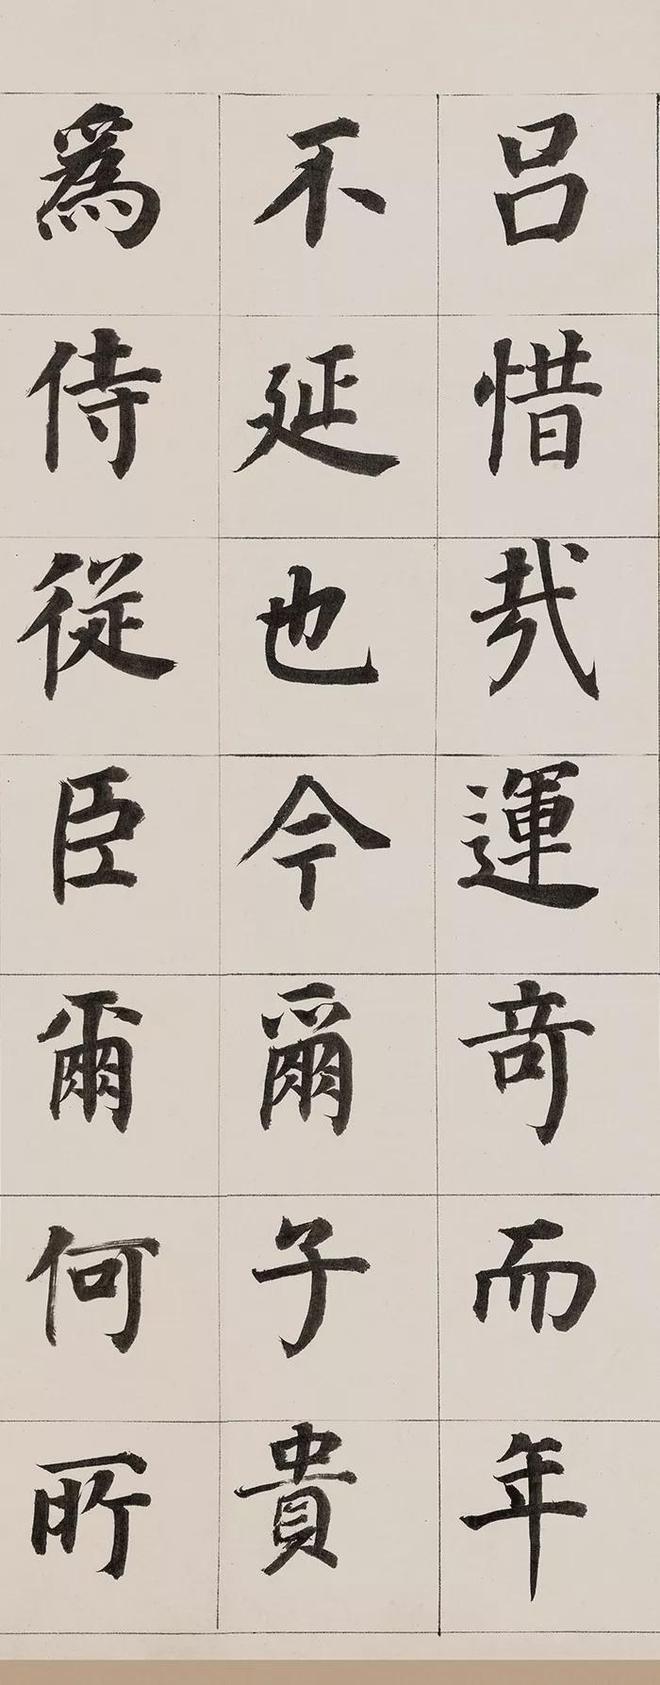 呂惜哉運奇而年
不延也今爾子貴
為侍從臣爾何所